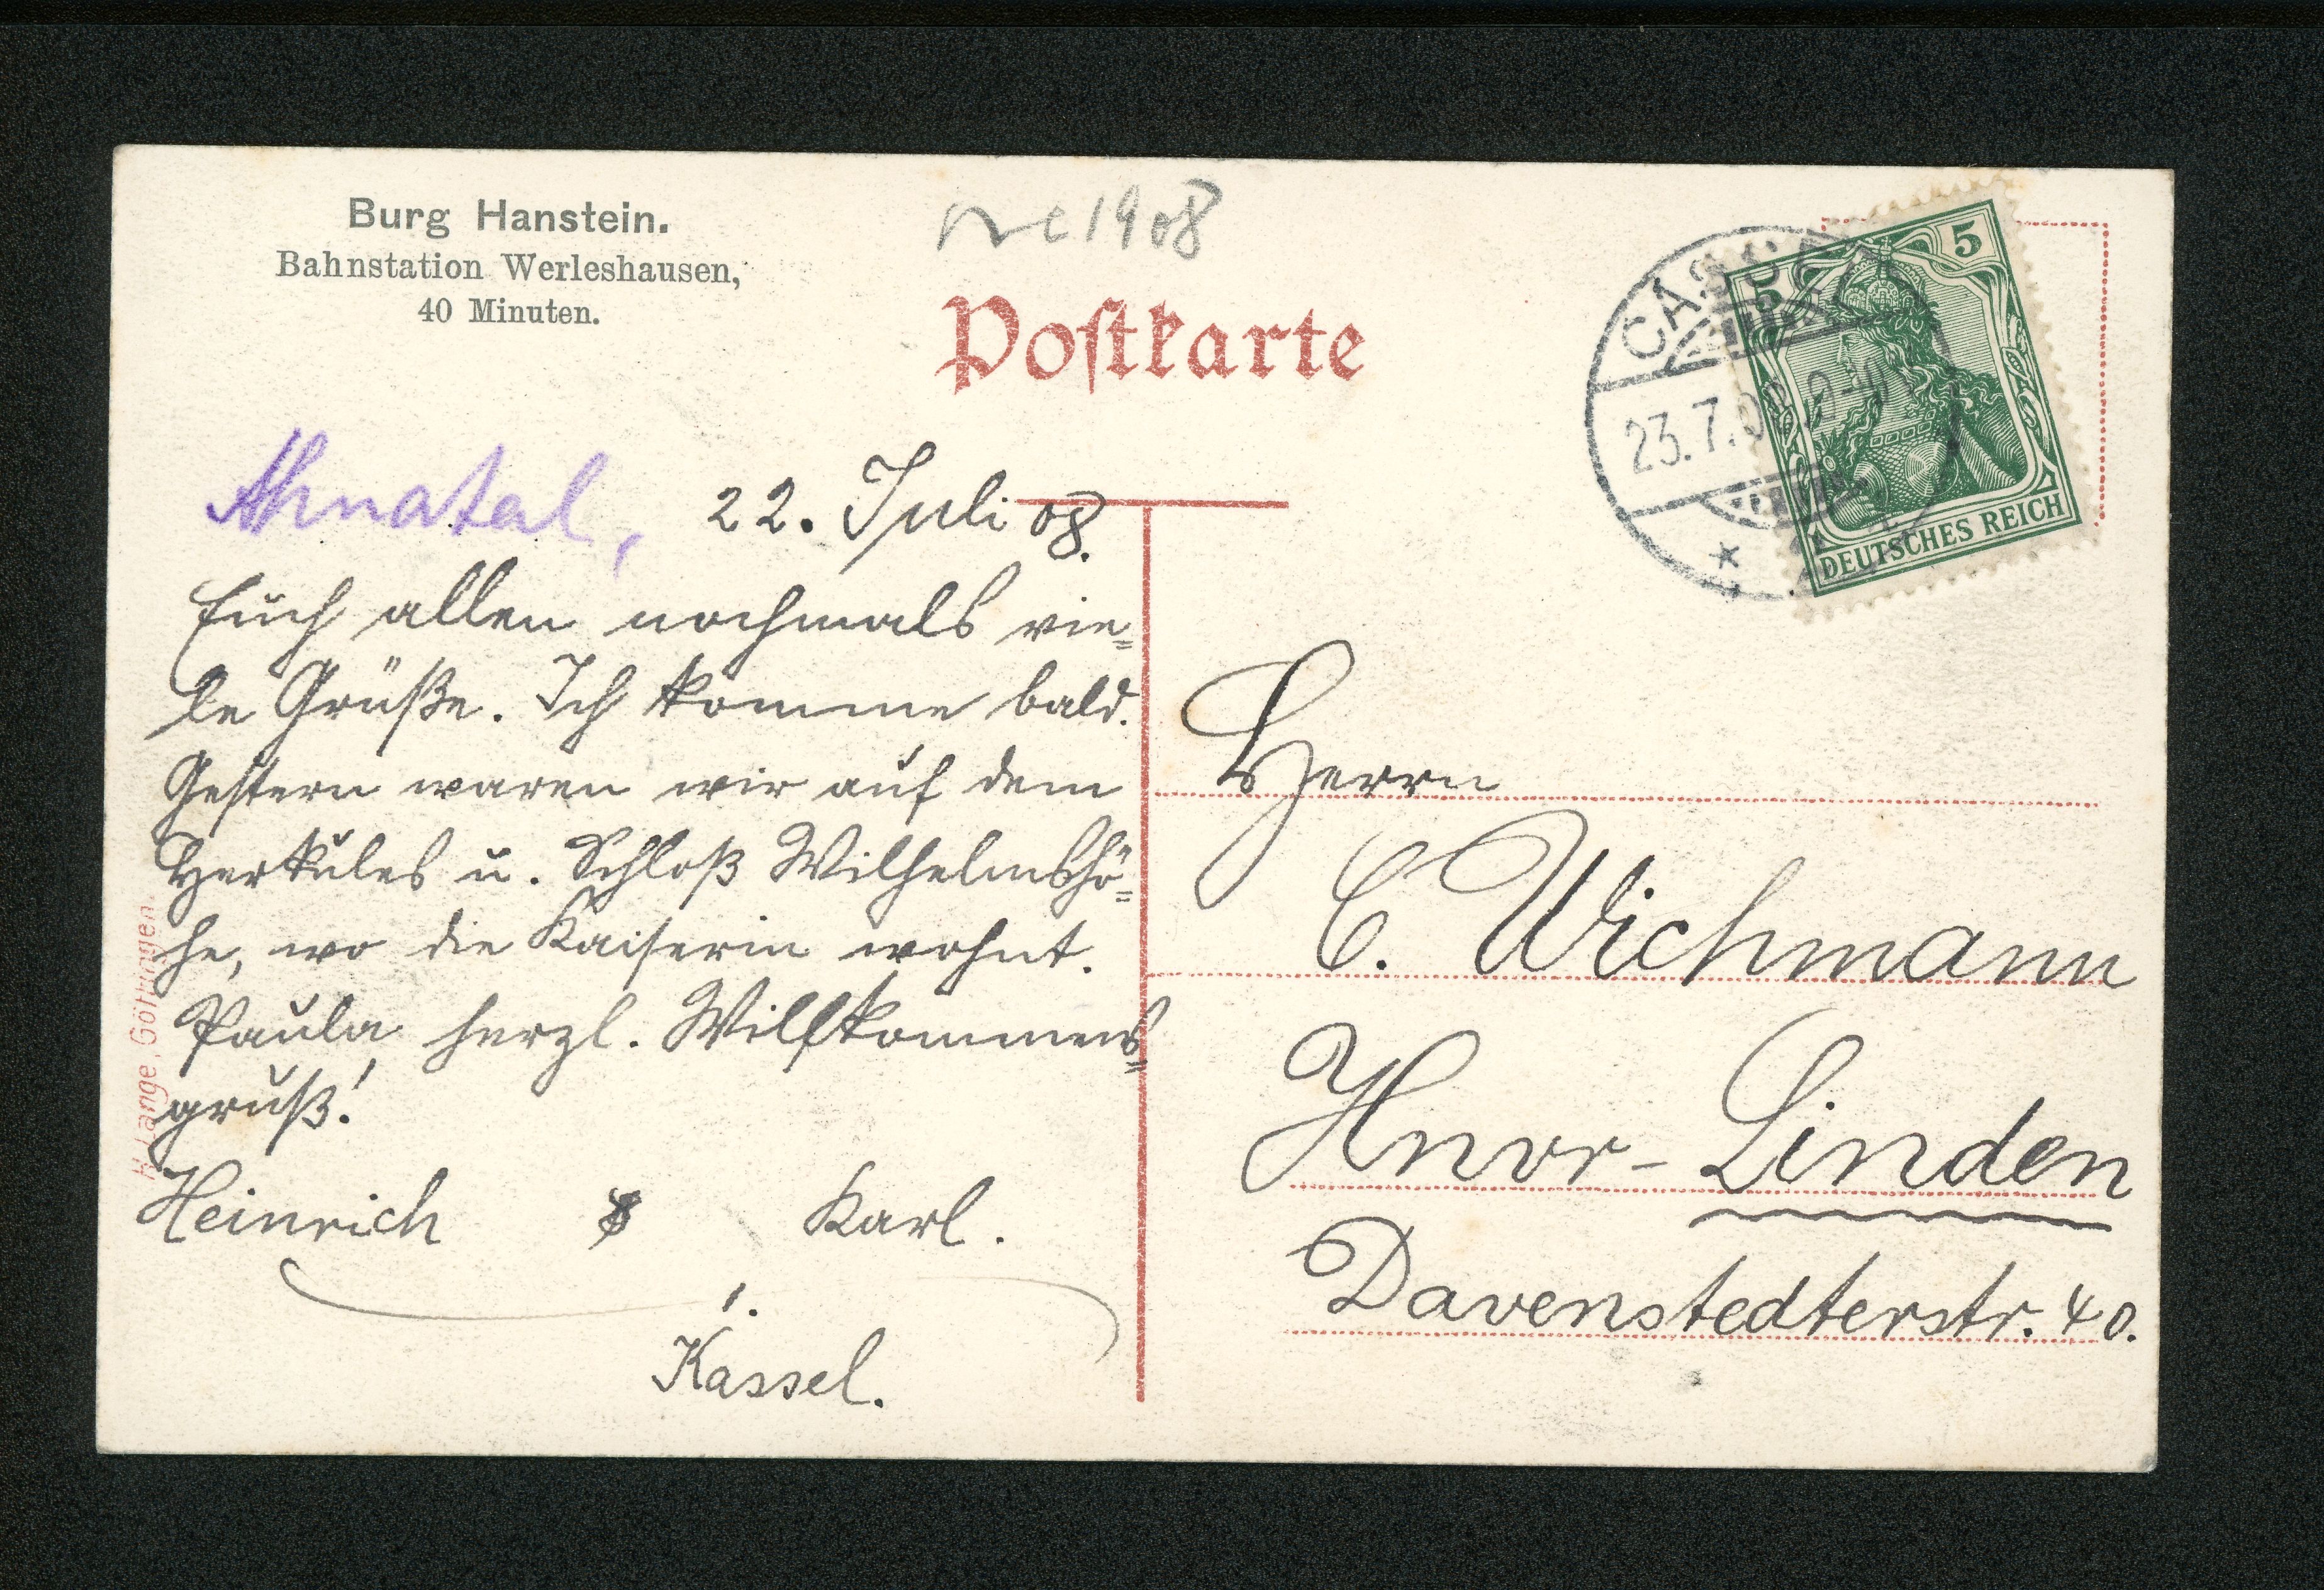 Burg Hanstein.
Bahnstation Werleshausen,
40 Minuten.
1908
Postkarte
CASSEL
23.7.08
5
DEUTSCHES REICH
Ahnatal, 22. Juli 08.
Euch allen nochmals vie=
le Grüße. Ich komme bald.
Gestern waren wir auf dem
Herkules u. Schloß Wilhelmshö=
he, wo die Kaiserin wohnt.
Paula herzl. Willkommens=
gruß!
Heinrich Karl.
Kassel.
Herrn
C. Wichmann
Hnvr-Linden
Davenstedterstr. 40.
Lange, Göttingen